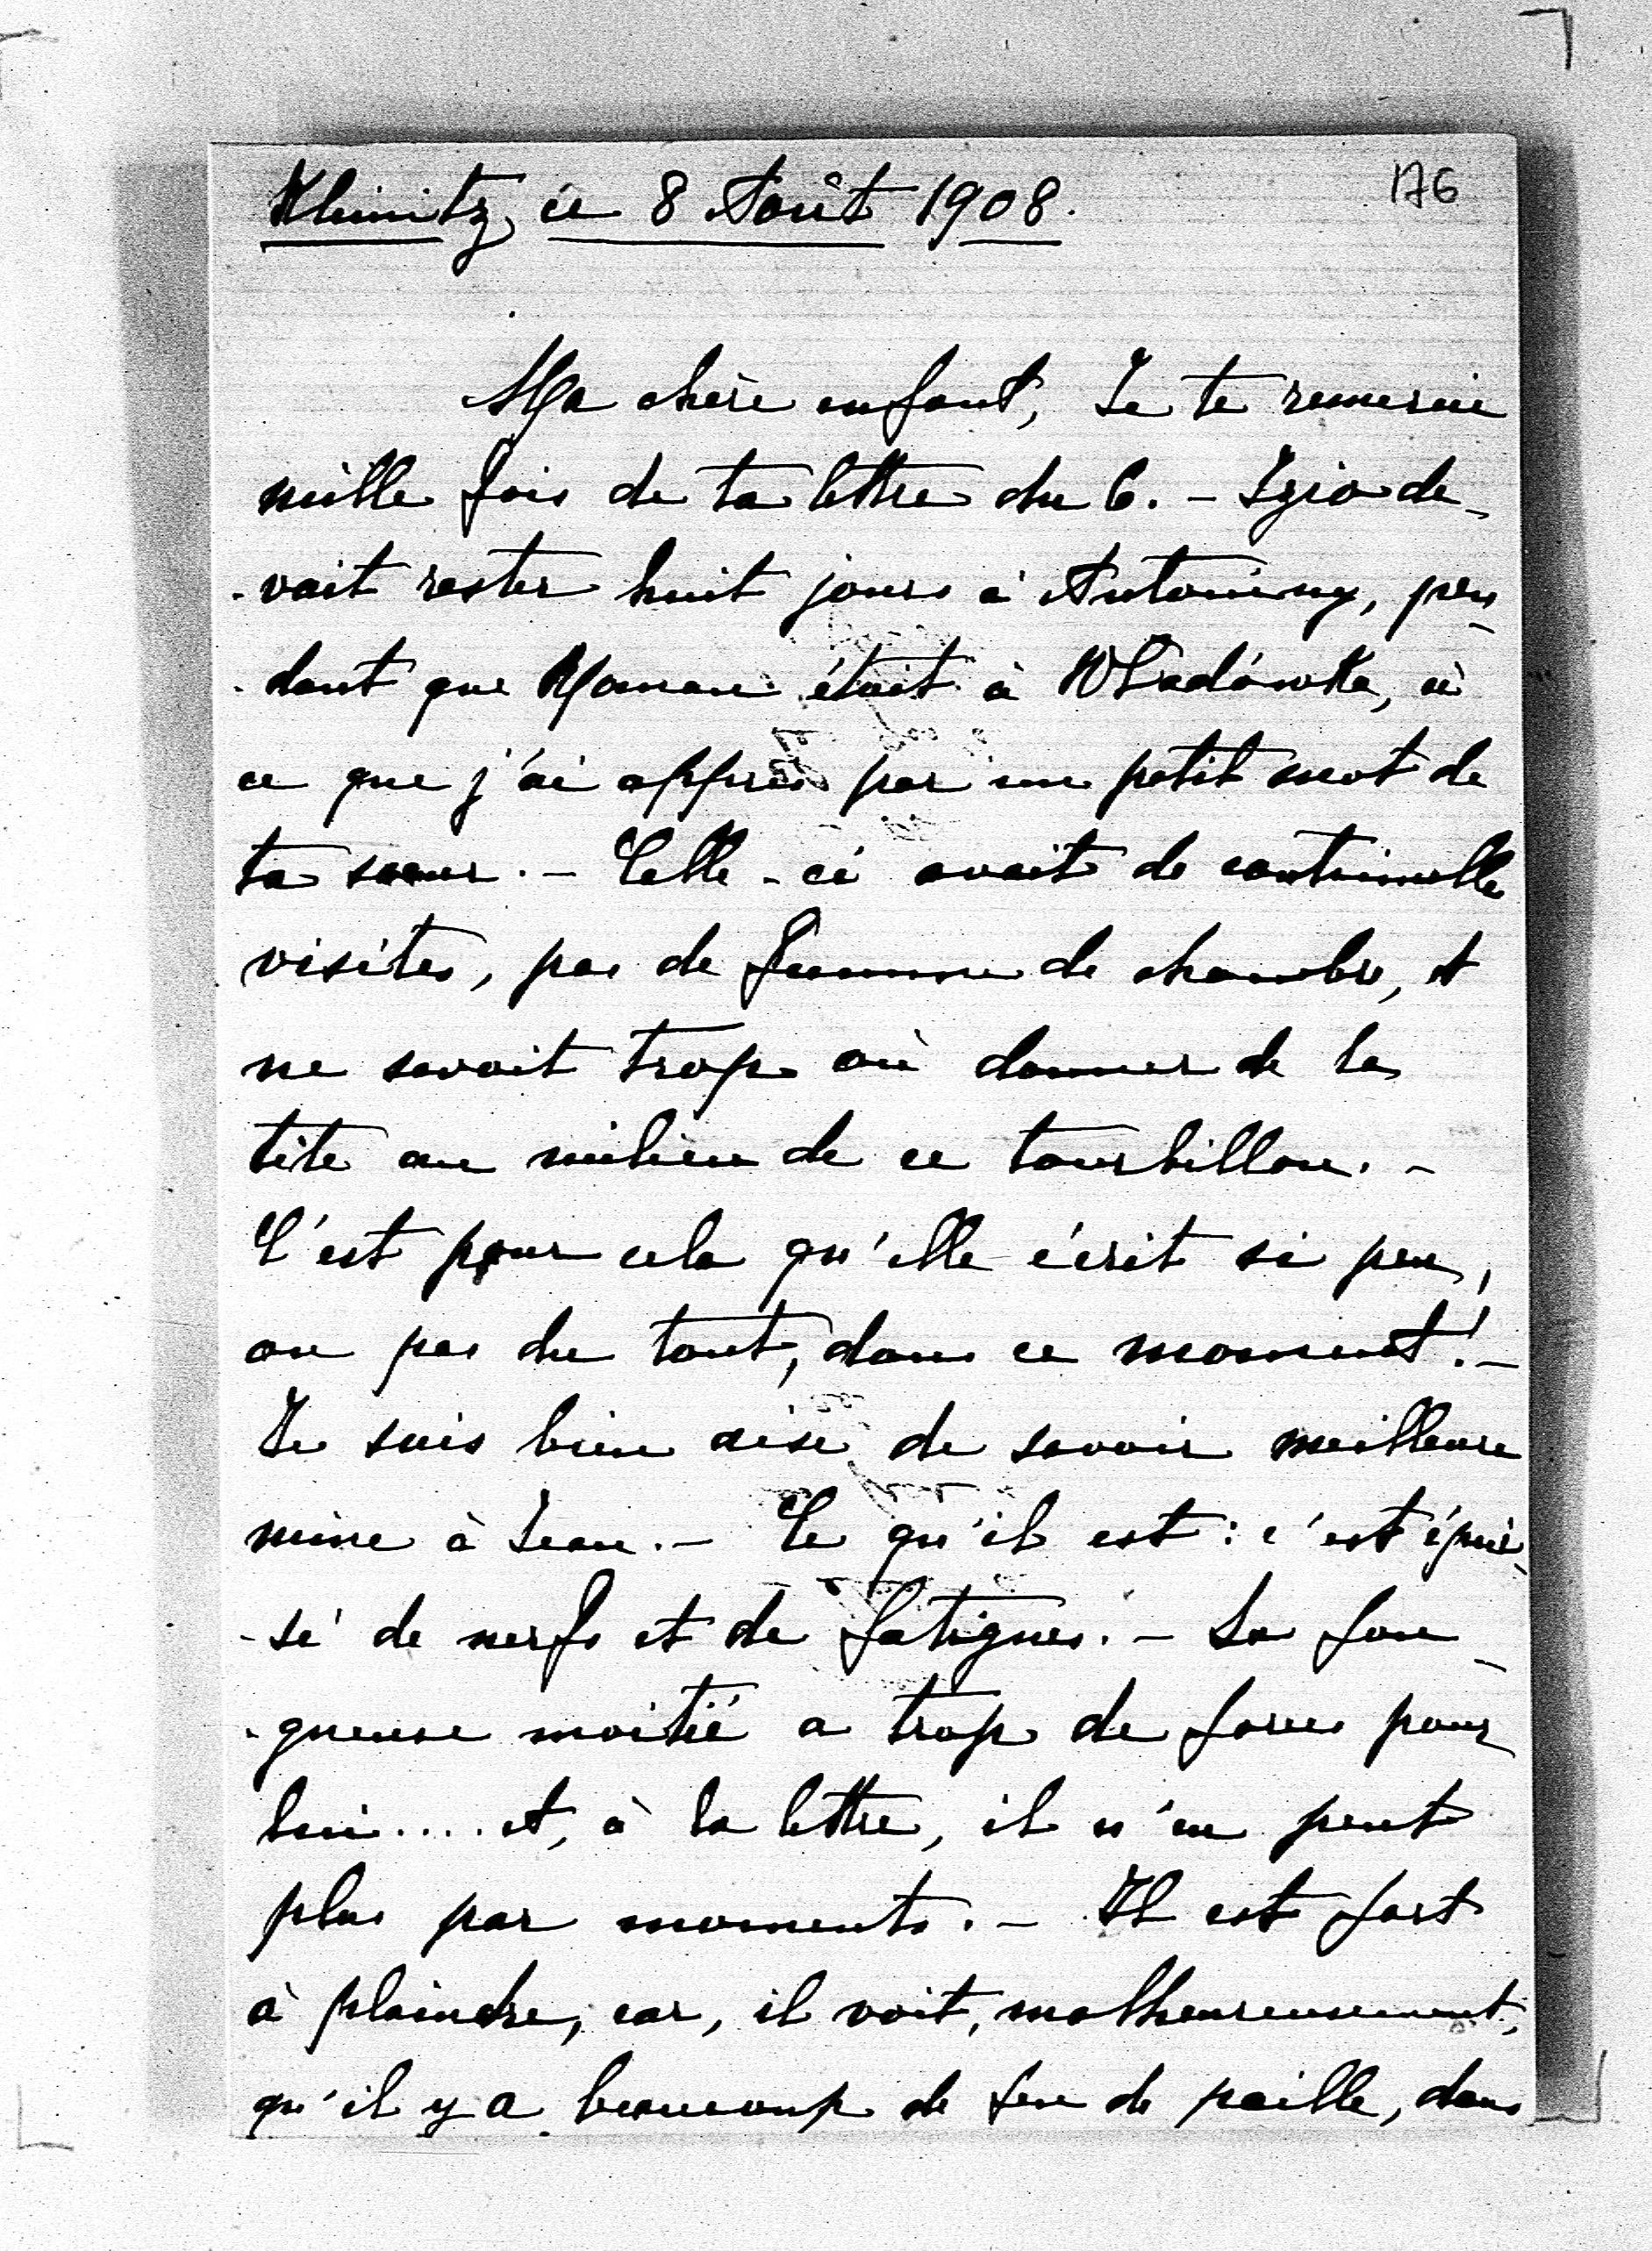 Klimitz, ce 8 Août 1908.
176
Ma chère enfant, Je te remercie
mille fois de ta lettre du 6. - Izio de-
-vait rester huit jours à Antoniny, pen-
-dant que Maman était à Władówka, à
ce que j'ai appris par un petit mot de
ta sœur. - Celle-ci avait de continuelles
visites, pas de femme de chambre, et
ne savait trop où donner de la
tête au milieu de ce tourbillon. -
C'est pour cela qu'elle écrit si peu,
ou pas du tout, dans ce moment! -
Je suis bien aise de savoir meilleure
mine à Jean. - Ce qu'il est : c'est épui-
-sé de nerfs et de fatigues. - Sa fou-
-gueuse moitié a trop de forces pour
lui.... et, à la lettre, il n'en peut
plus par moments. - Il est fort
à plaindre, car, il voit, malheureusement,
qu'il y a beaucoup de feu de paille, dans